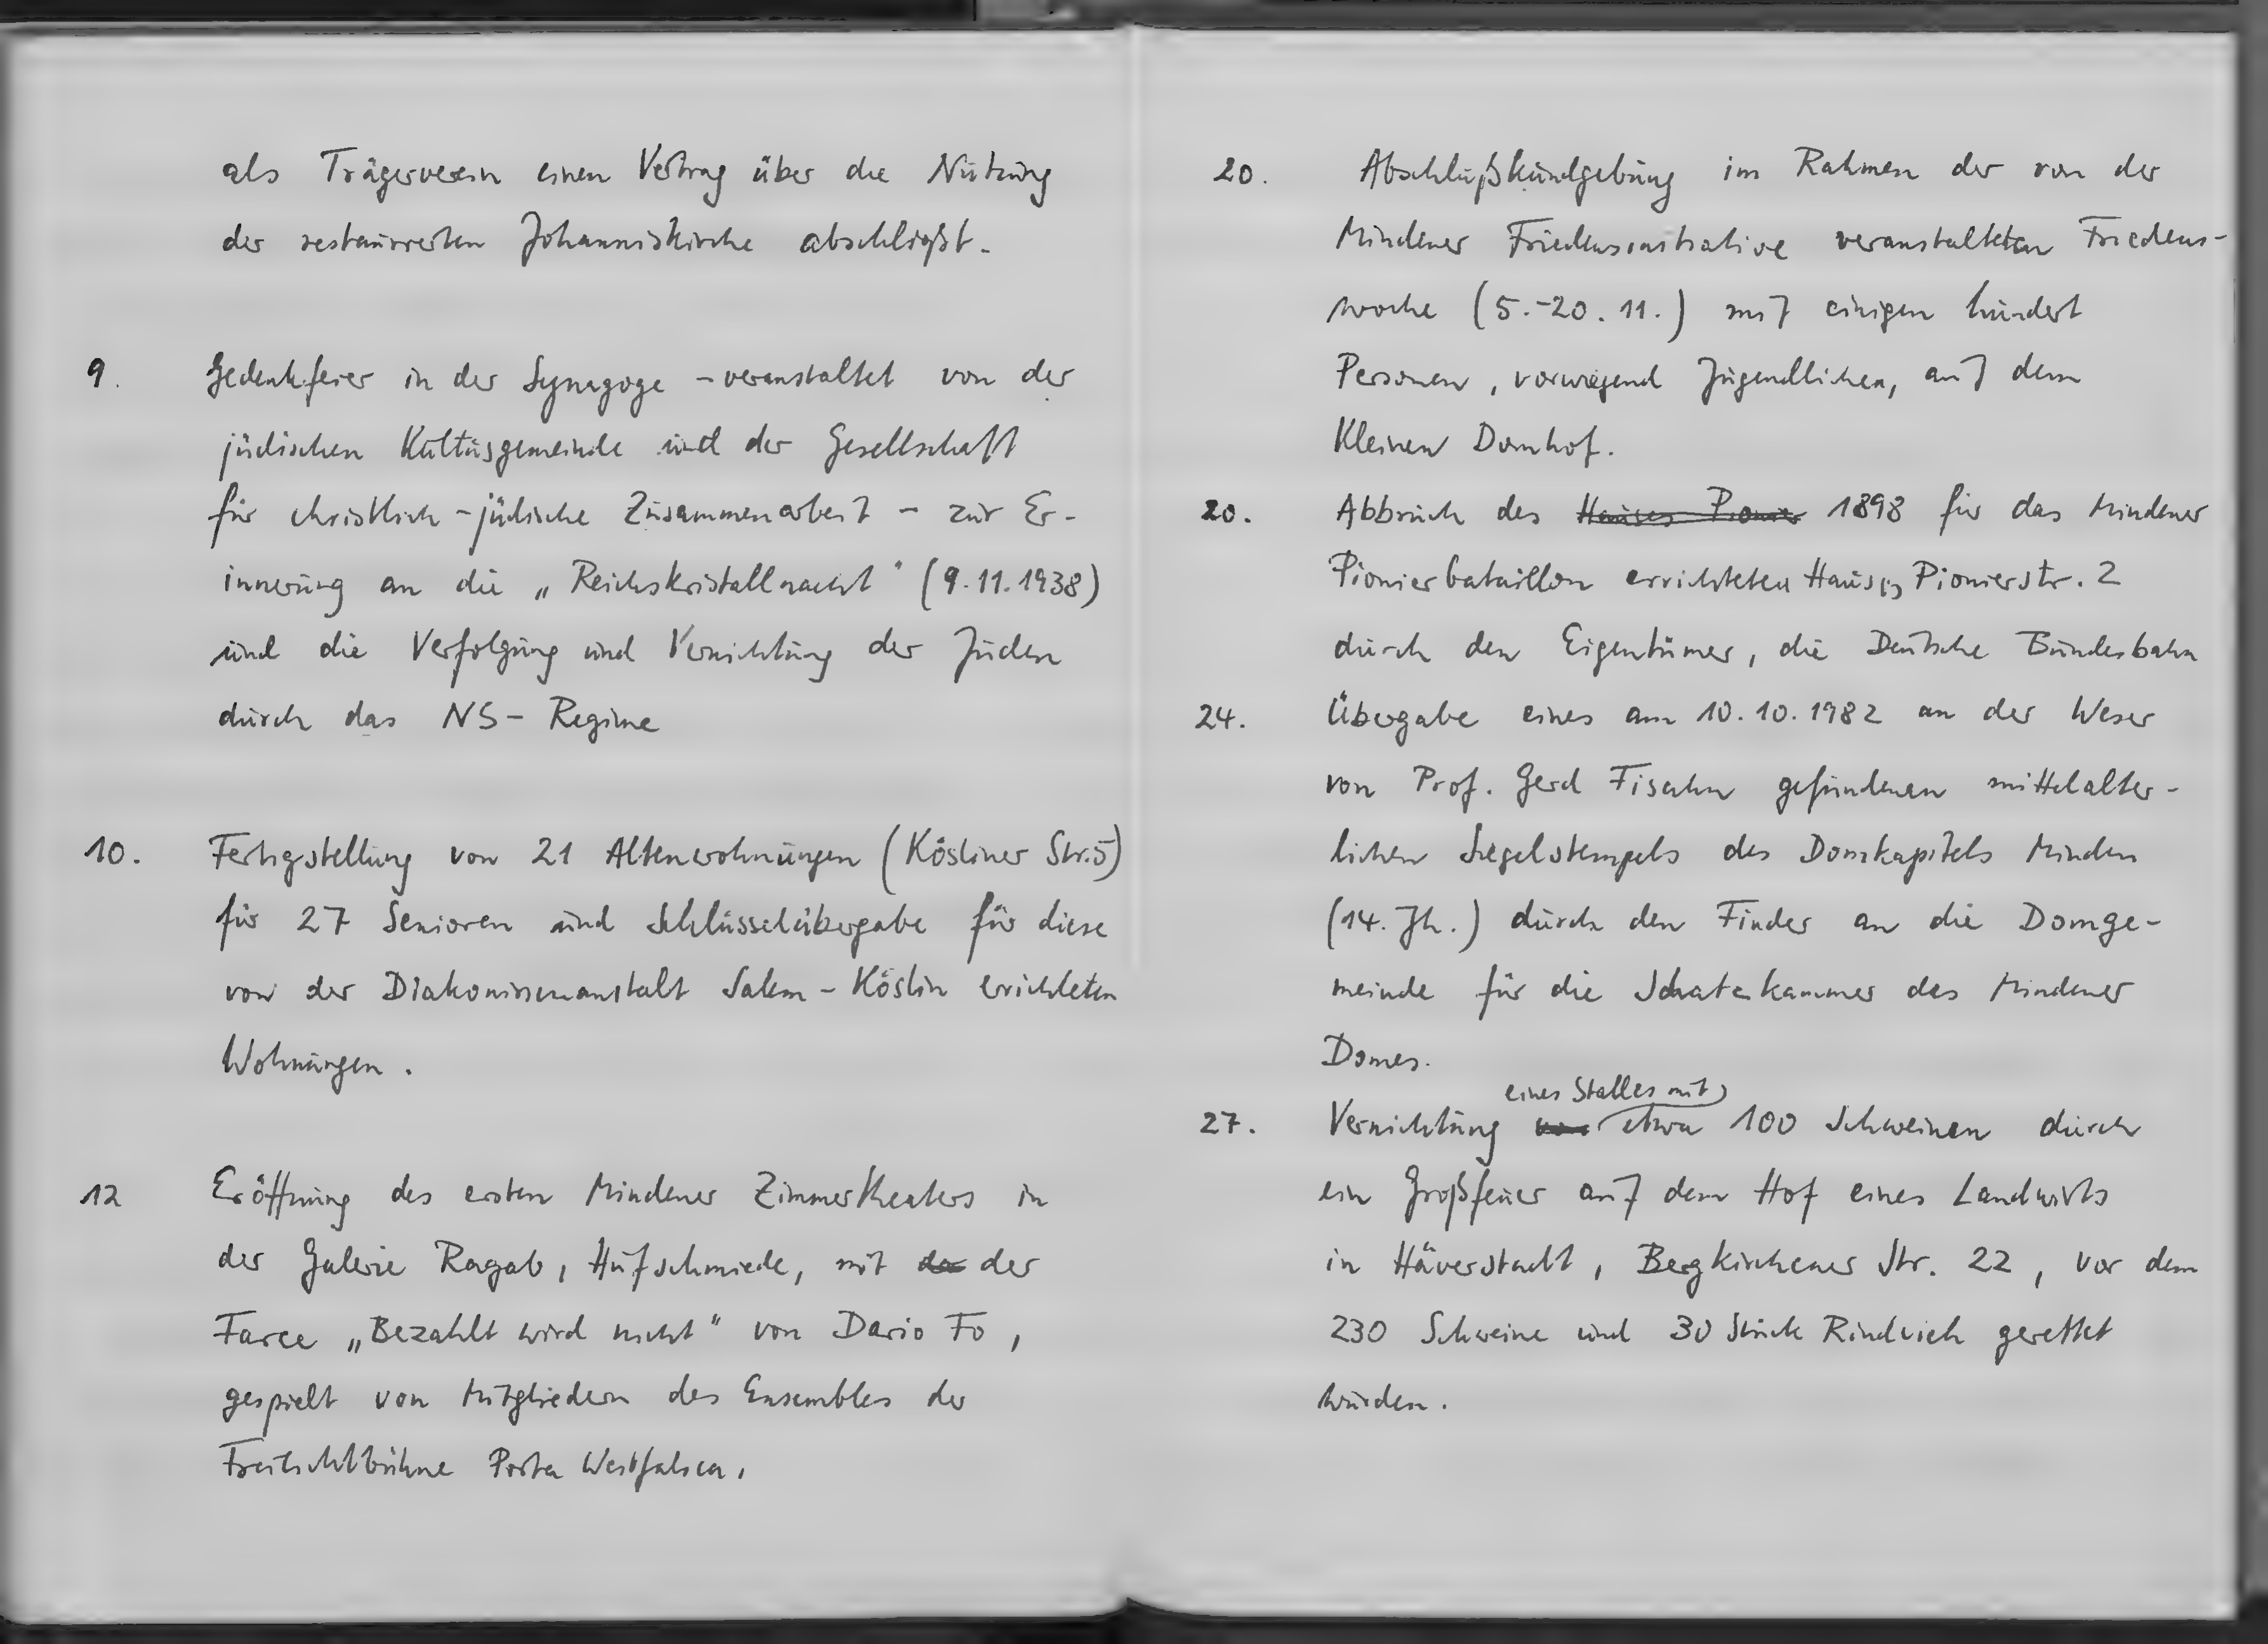 als Trägerverein einen Vertrag über die Nutzung
der restaurierten Johanniskirche abschließt.
9. Gedenkfeier in der Synagoge - veranstaltet von der
jüdischen Kultusgemeinde und der Gesellschaft
für christlich-jüdische Zusammenarbeit - zur Er-
innerung an die „Reichskristallnacht" (9.11.1938)
und die Verfolgung und Vernichtung der Juden
durch das NS-Regime
10. Fertigstellung von 21 Altenwohnungen (Kösliner Str. 5)
für 27 Senioren und Schlüsselübergabe für diese
von der Diakonissenanstalt Salem-Köslin errichteten
Wohnungen.
12 Eröffnung des ersten Mindener Zimmertheaters in
der Galerie Ragab, Hufschmiede, mit der
Farce „Bezahlt wird nicht" von Dario Fo,
gespielt von Mitgliedern des Ensembles der
Freilichtbühne Porta Westfalica.
20. Abschlußkundgebung im Rahmen der von der
Mindener Friedensinitiative veranstalteten Friedens-
woche (5.-20.11.) mit einigen hundert
Personen, vorwiegend Jugendlichen, auf dem
Kleinen Domhof.
20. Abbruch des Hauses Pionier 1898 für das Mindener
Pionierbataillon errichteten Hauses Pionierstr. 2
durch den Eigentümer, die Deutsche Bundesbahn
24. Übergabe eines am 10.10.1982 an der Weser
von Prof. Gerd Fisahn gefundenen mittelalter-
lichen Siegelstempels des Domkapitels Minden
(14. Jh.) durch den Finder an die Domge-
meinde für die Schatzkammer des Mindener
Domes.
eines Stalles mit
27. Vernichtung von etwa 100 Schweinen durch
ein Großfeuer auf dem Hof eines Landwirts
in Häverstädt, Bergkirchener Str. 22, vor dem
230 Schweine und 30 Stück Rindvieh gerettet
wurden.